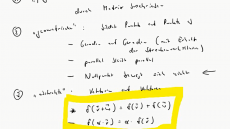 durch Matrix beschrieben
② „geometrische“: bildet Punkte auf Punkte ab
- Geraden auf Geraden (mit Erhalt
der Streckenverhältnisse)
- parallel bleibt parallel
- Nullpunkt bewegt sich nicht
③ Vektoren auf Vektoren
* f(v⃗+w⃗) = f(v⃗) + f(w⃗)
* f(α·v⃗) = α·f(v⃗)